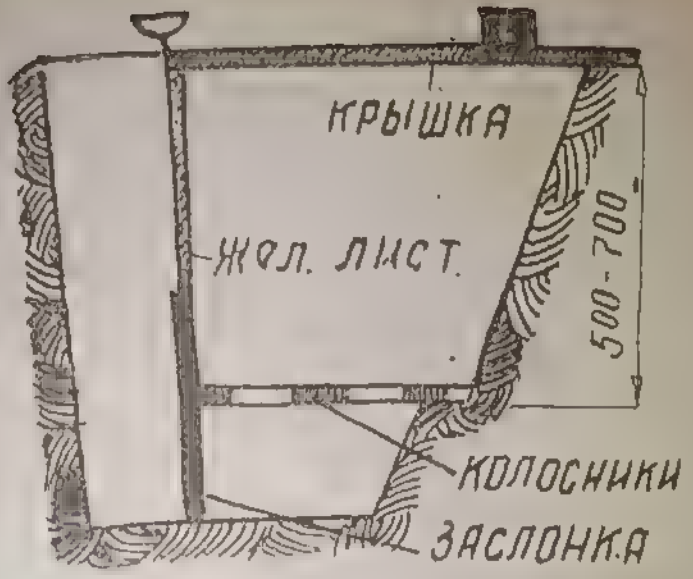 КРЫШКА
ЖЕЛ. ЛИСТ.
500-700
КОЛОСНИКИ
ЗАСЛОНКА